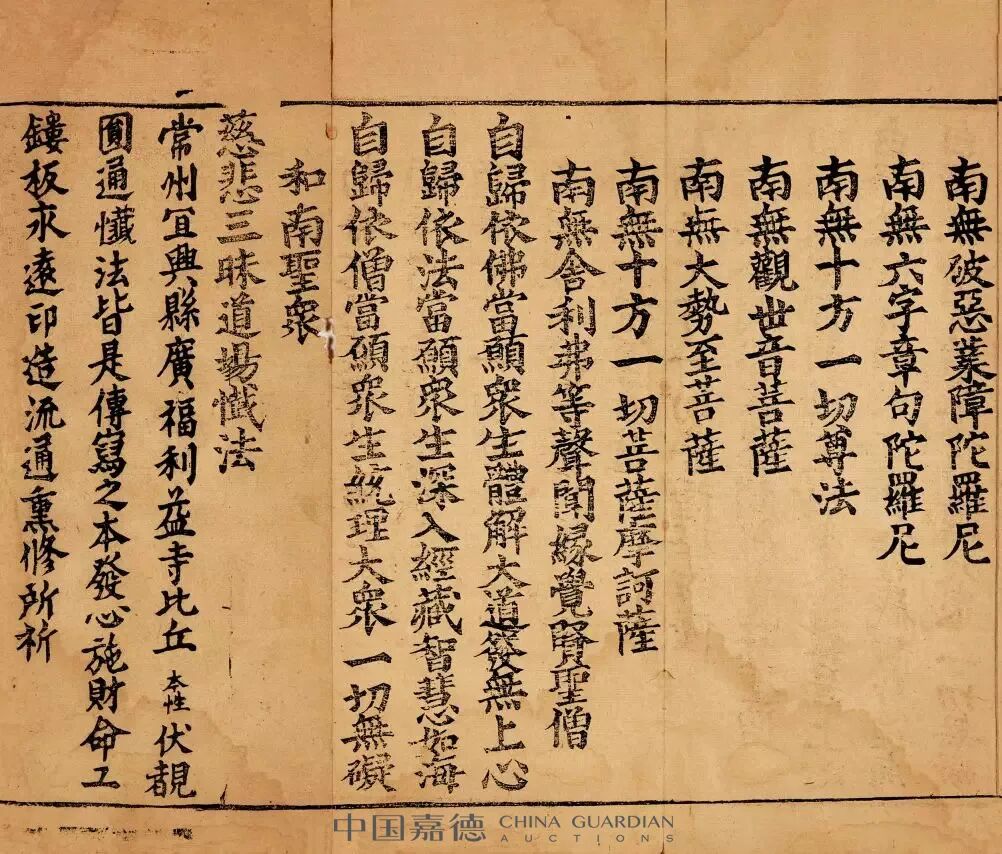 南無破惡業障陀羅尼
南無六字章句陀羅尼
南無十方一切尊法
南無觀世音菩薩
南無大勢至菩薩
南無十方一切菩薩摩訶薩
南無舍利弗等聲聞緣覺賢聖僧
自歸依佛當願衆生體解大道發無上心
自歸依法當願衆生深入經藏智慧如海
自歸依僧當願衆生統理大衆一切無礙
和南聖衆
慈悲三昧道場懺法
常州宜興縣廣福利益寺比丘本性伏覩
圓通懺法皆是傳寫之本發心施財命工
鏤板永遠印造流通熏修所祈
中国嘉德 CHINA GUARDIAN
AUCTIONS